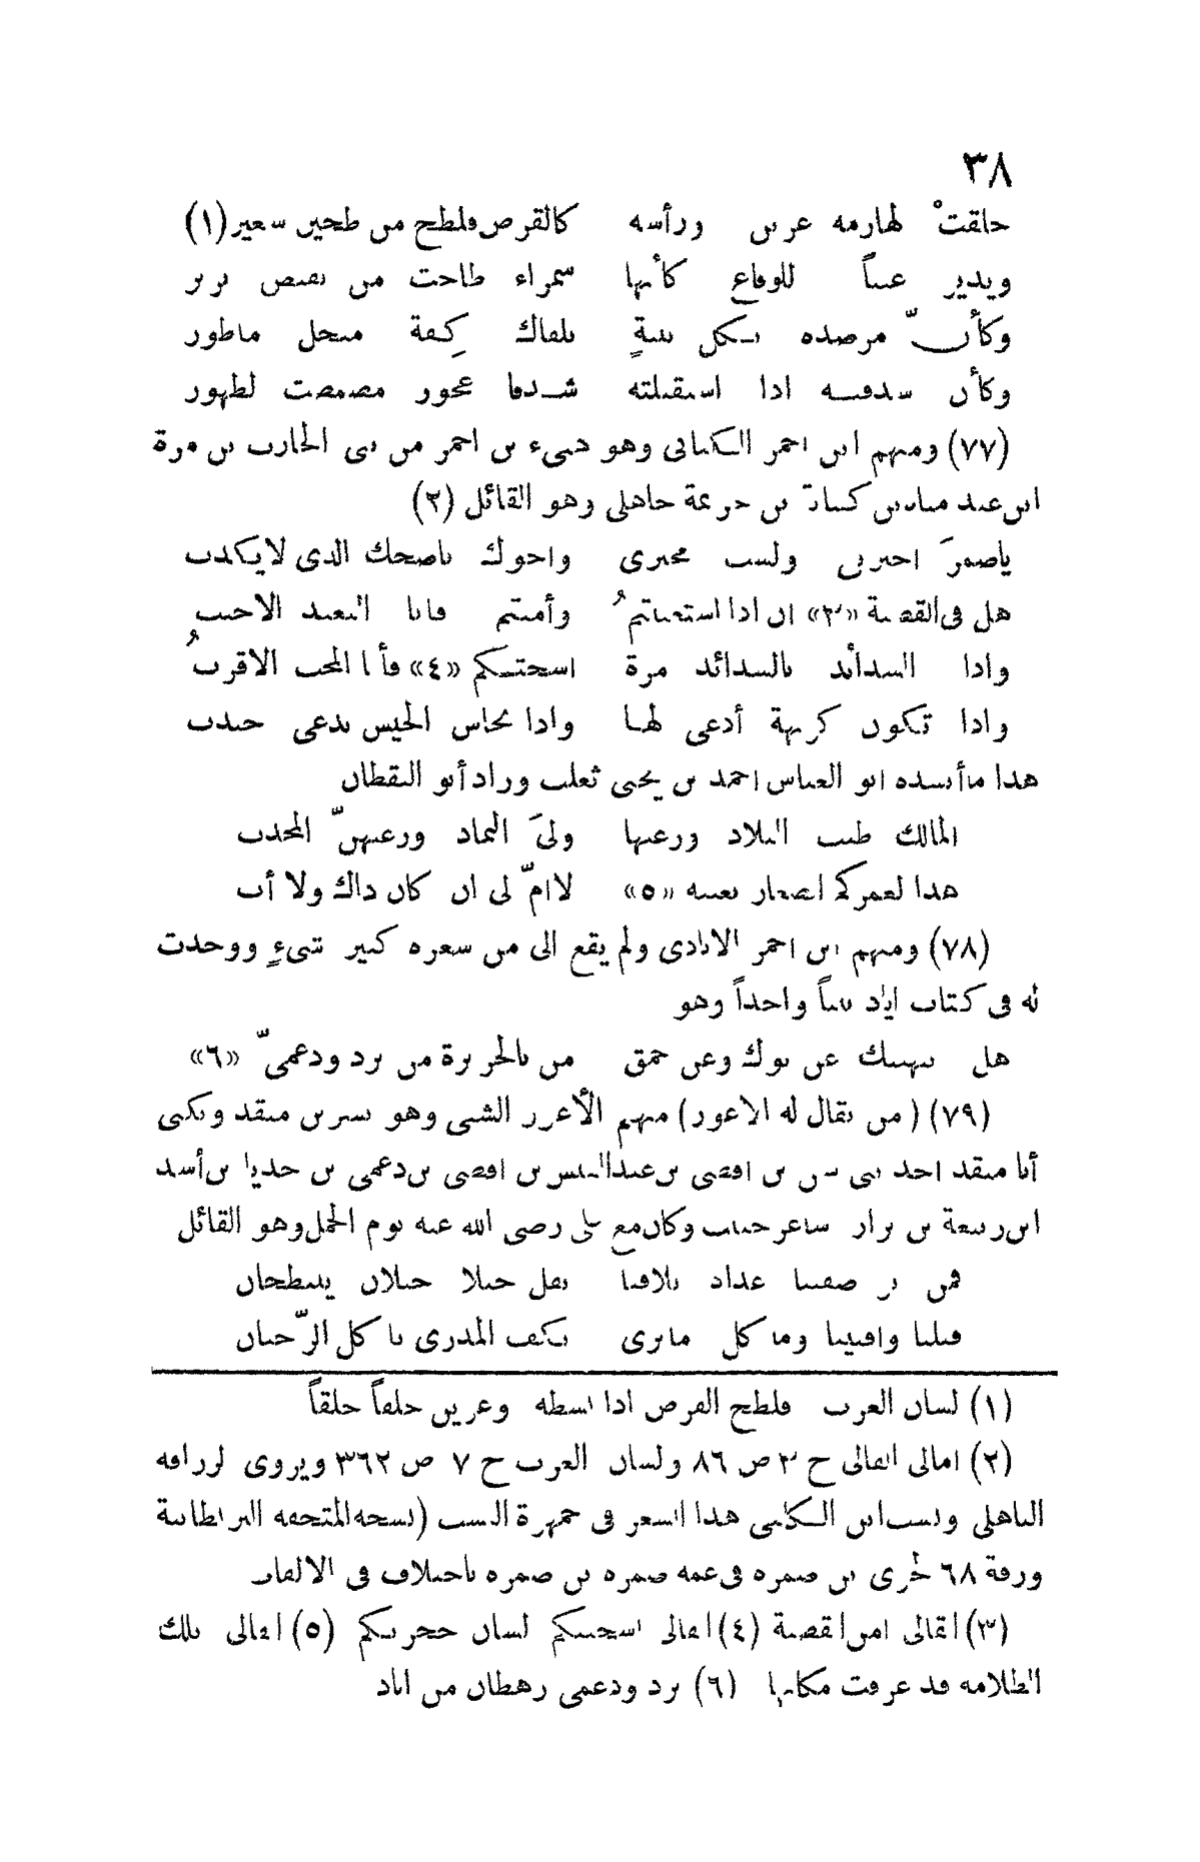 ٣٨
خلقتْ لهازمه عزين ورأسه كالقرص فلطح من طحين سعير (١)
ويدير عيناً للوقاع كأنها سمراء طاحت من نفيض برير
وكأنّ مرصده بكل ثنيةٍ يلقاك كِفة منخل ماطور
وكأن شدقيه اذا استقبلته شدقا عجوز مضمضت لطهور
(٧٧) ومنهم ابن احمر الكنانى وهو هنىء بن احمر من بنى الحارث بن مرة
ابن عبد مناة بن كنانة بن خزيمة جاهلى وهو القائل (٢)
ياضمرَ اخبرنى ولست بمخبرى واخوك ناصحك الذى لايكذب
هل فى القضية «٣» ان اذا استغنيتمُ وأمنتم فانا البعيد الاجنب
واذا الشدائد بالشدائد مرة اشجتكم «٤» فأنا المحب الاقربُ
واذا تكون كريهة أدعى لها واذا يحاس الحيس يدعى جندب
هذا ماأنشده ابو العباس احمد بن يحيى ثعلب وزاد أبو اليقظان
المالك طيب البلاد ورعيها ولىَ الثماد ورعيهنّ المجدب
هذا لعمركم الصغار بعينه «٥» لاامّ لى ان كان ذاك ولا أب
(٧٨) ومنهم ابن احمر الايادى ولم يقع الى من شعره كبير شىءٍ ووجدت
له فى كتاب اياد بيتاً واحداً وهو
هل ينهينك عن نوك وعن حمق من بالجزيرة من برد ودعمىّ «٦»
(٧٩) (من يقال له الاعور) منهم الأعور الشنى وهو بشر بن منقذ ويكنى
أبا منقذ احد بنى شن بن افصى بن عبد القيس بن افصى بن دعمى بن جديلة بن أسد
ابن ربيعة بن نزار شاعر خبيث وكان مع على رضى الله عنه يوم الجمل وهو القائل
فمن ير صفينا غداة تلاقيا يقل جبلا جيلان ينتطحان
قتلنا وافنينا وما كل ماترى بكف المذرى يأكل الرّحيان
(١) لسان العرب فلطح القرص اذا بسطه وعزين حلفاً حلقاً
(٢) امالى القالى ج ٣ ص ٨٦ ولسان العرب ج ٧ ص ٣٦٢ ويروى لزرافة
الباهلى ونسب ابن الكلبى هذا الشعر فى جمهرة النسب (نسخة المتحفة البريطانية
ورقة ٦٨ لجرى بن ضمرة فى عمه ضمرة بن ضمرة باختلاف فى الالفاظ
(٣) القالى امن القضية (٤) القالى اشجتكم لسان حجرتكم (٥) القالى تلك
الظلامة قد عرفت مكانها (٦) برد ودعمى رهطان من اياد